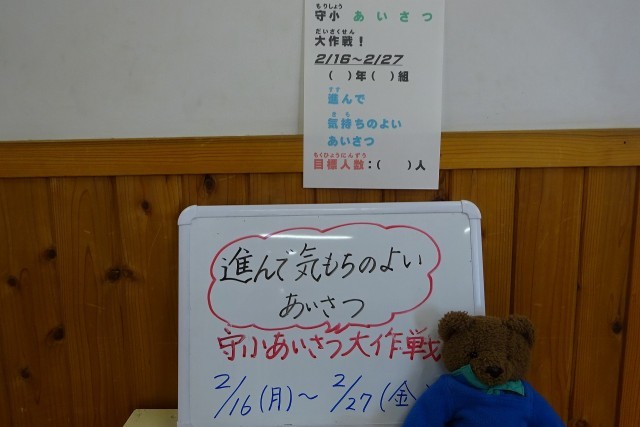 もりしょう
守小 あいさつ
だいさくせん
大作戦！
2/16～2/27
（　）年（　）組
すす
進んで
きも
気持ちのよい
あいさつ
もくひょうにんずう
目標人数：（　　）人
進んで気もちのよい
あいさつ
守小あいさつ大作戦
2/16(月)～2/27(金)